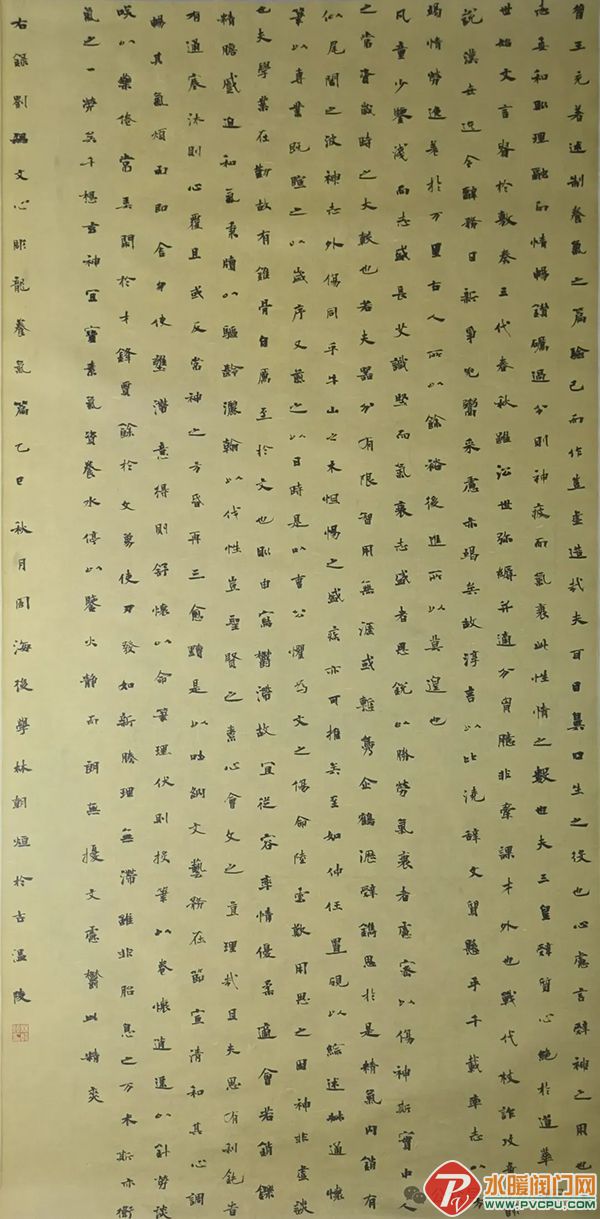 昔王充著述制養氣之篇驗己而作豈虛造哉夫耳目鼻口生之役也心慮言辭神之用也
志委和則理融而情暢鑽礪過分則神疲而氣衰此性情之數也夫三皇辭質心絕於道華
世始文言貴於敷奏三代春秋雖沿世弥縟并適分胷臆非牽課才外也戰代枝詐攻奇飾
說漢世迄今辭務日新爭光鬻采慮亦竭矣故淳言以比澆辭文質懸乎千載率志以方
竭情勞逸差於万里古人所以餘裕後進所以莫遑也
凡童少鑒淺而志盛長艾識堅而氣衰志盛者思銳以勝勞氣衰者慮密以傷神斯實中人
之常資歲時之大較也若夫器分有限智用無涯或慚鳧企鶴瀝辭鐫思於是精氣內銷有
似尾閭之波神志外傷同乎牛山之木怛惕之盛疾亦可推矣至如仲任置硯以綜述叔通懷
筆以專業既暄之以歲序又煎之以日時是以曹公懼為文之傷命陸雲歎用思之困神非虛談
也夫學業在勤故有錐骨自厲至於文也則申寫鬱滯故宜從容率情優柔適會若銷鑠
精膽蹙迫和氣秉牘以驅齡灑翰以伐性豈聖賢之素心會文之直理哉且夫思有利鈍時
有通塞沐則心覆且或反常神之方昏再三愈黷是以吐納文藝務在節宣清和其心調
暢其氣煩而即舍勿使壅滯意得則舒懷以命筆理伏則投筆以卷懷逍遙以針勞談
笑以藥倦常弄閑於才鋒賈餘於文勇使刃發如新腠理無滯雖非胎息之万术斯亦衛
氣之一勞矣千想玄神宜寶素氣資養水停以鑒火靜而朗無擾文慮鬱此精爽
右錄劉勰文心雕龍養氣篇乙巳秋月閩海後學林朝烜於古溫陵
水暖阀门网
WWW.PVCPU.COM